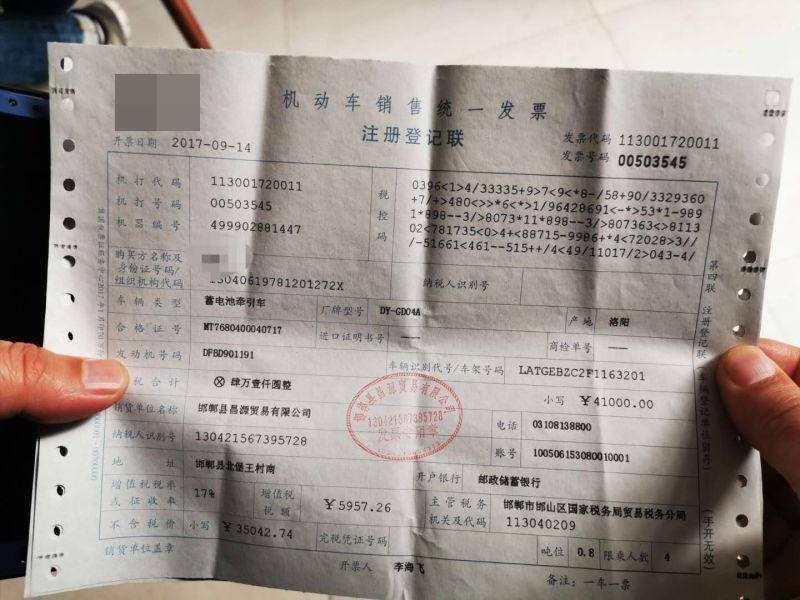 机动车销售统一发票
注册登记联
开票日期 2017-09-14
发票代码 113001720011
发票号码 00503545
机打代码 113001720011
机打号码 00503545
机器编号 499902881447
税控码
0396<1>4/33335+9>7<9<*8-/58+90/3329360
+7/+>480<>>*6<*>1/96428691<-*>53*1-989
1*898--3/>8073*11*898--3/>807363<>8113
02<781735<0>4+<88715-9986+*4<72028>3//
/-51661<461--515++/4<49/11017/2>043-4/
购买方名称及
身份证号码/
组织机构代码
13040619781201272X
纳税人识别号
车辆类型 蓄电池牵引车 厂牌型号 DY-GD04A 产地 洛阳
合格证号 MT7680400040717 进口证明书号 —— 商检单号 ——
发动机号码 DFBD901191 车辆识别代号/车架号码 LATGEBZC2F1163201
税合计 ⊗ 肆万壹仟圆整 小写 ￥41000.00
销货单位名称 邯郸县昌源贸易有限公司 电话 03108138800
纳税人识别号 130421567395728 账号 100506153080010001
地址 邯郸县北堡王村南 开户银行 邮政储蓄银行
增值税税率
或征收率
17%
增值税
税额
￥5957.26
主管税务
机关及代码
邯郸市邯山区国家税务局贸易税务分局
113040209
不含税价 小写 ￥35042.74 完税凭证号码 吨位 0.8 限乘人数 4
销货单位盖章 开票人 李海飞 备注：一车一票
邯郸县昌源贸易有限公司
130421567395728
发票专用章
第四联 注册登记联
(手开无效)